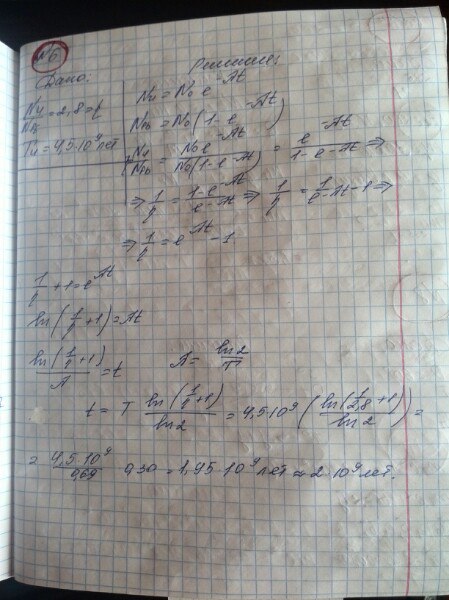 №6
Дано:
Решение:
N_U/N_Pb = 2,8 = η
T_U = 4,5·10⁹ лет
N_U = N₀ e^(-λt)
N_Pb = N₀(1 - e^(-λt))
N_U/N_Pb = N₀e^(-λt)/N₀(1-e^(-λt)) = e^(-λt)/(1-e^(-λt)) ⇒
⇒ 1/η = (1-e^(-λt))/e^(-λt) ⇒ 1/η = 1/e^(-λt) - 1 ⇒
⇒ 1/η = e^(λt) - 1
1/η + 1 = e^(λt)
ln(1/η + 1) = λt
ln(1/η + 1)/λ = t λ = ln2/T
t = T ln(1/η + 1)/ln2 = 4,5·10⁹ (ln(1/2,8 + 1)/ln2) =
= 4,5·10⁹/0,69 0,30 = 1,95·10⁹ лет ≈ 2·10⁹ лет.